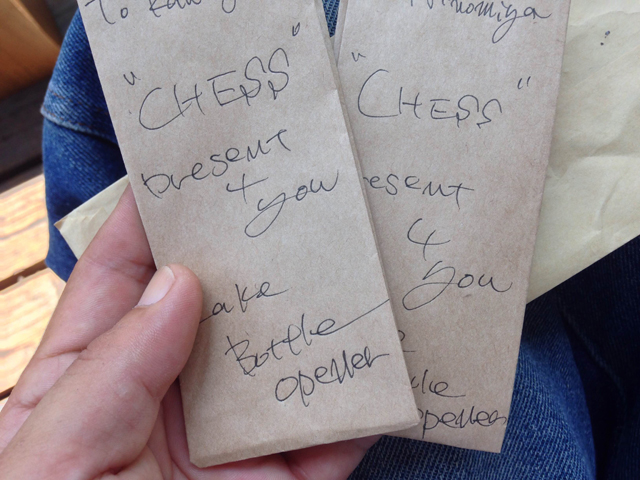 To
"CHESS"
present
4
you
ake
Bottle
opener
Ninomiya
"CHESS"
esent
4
you
ke
opener